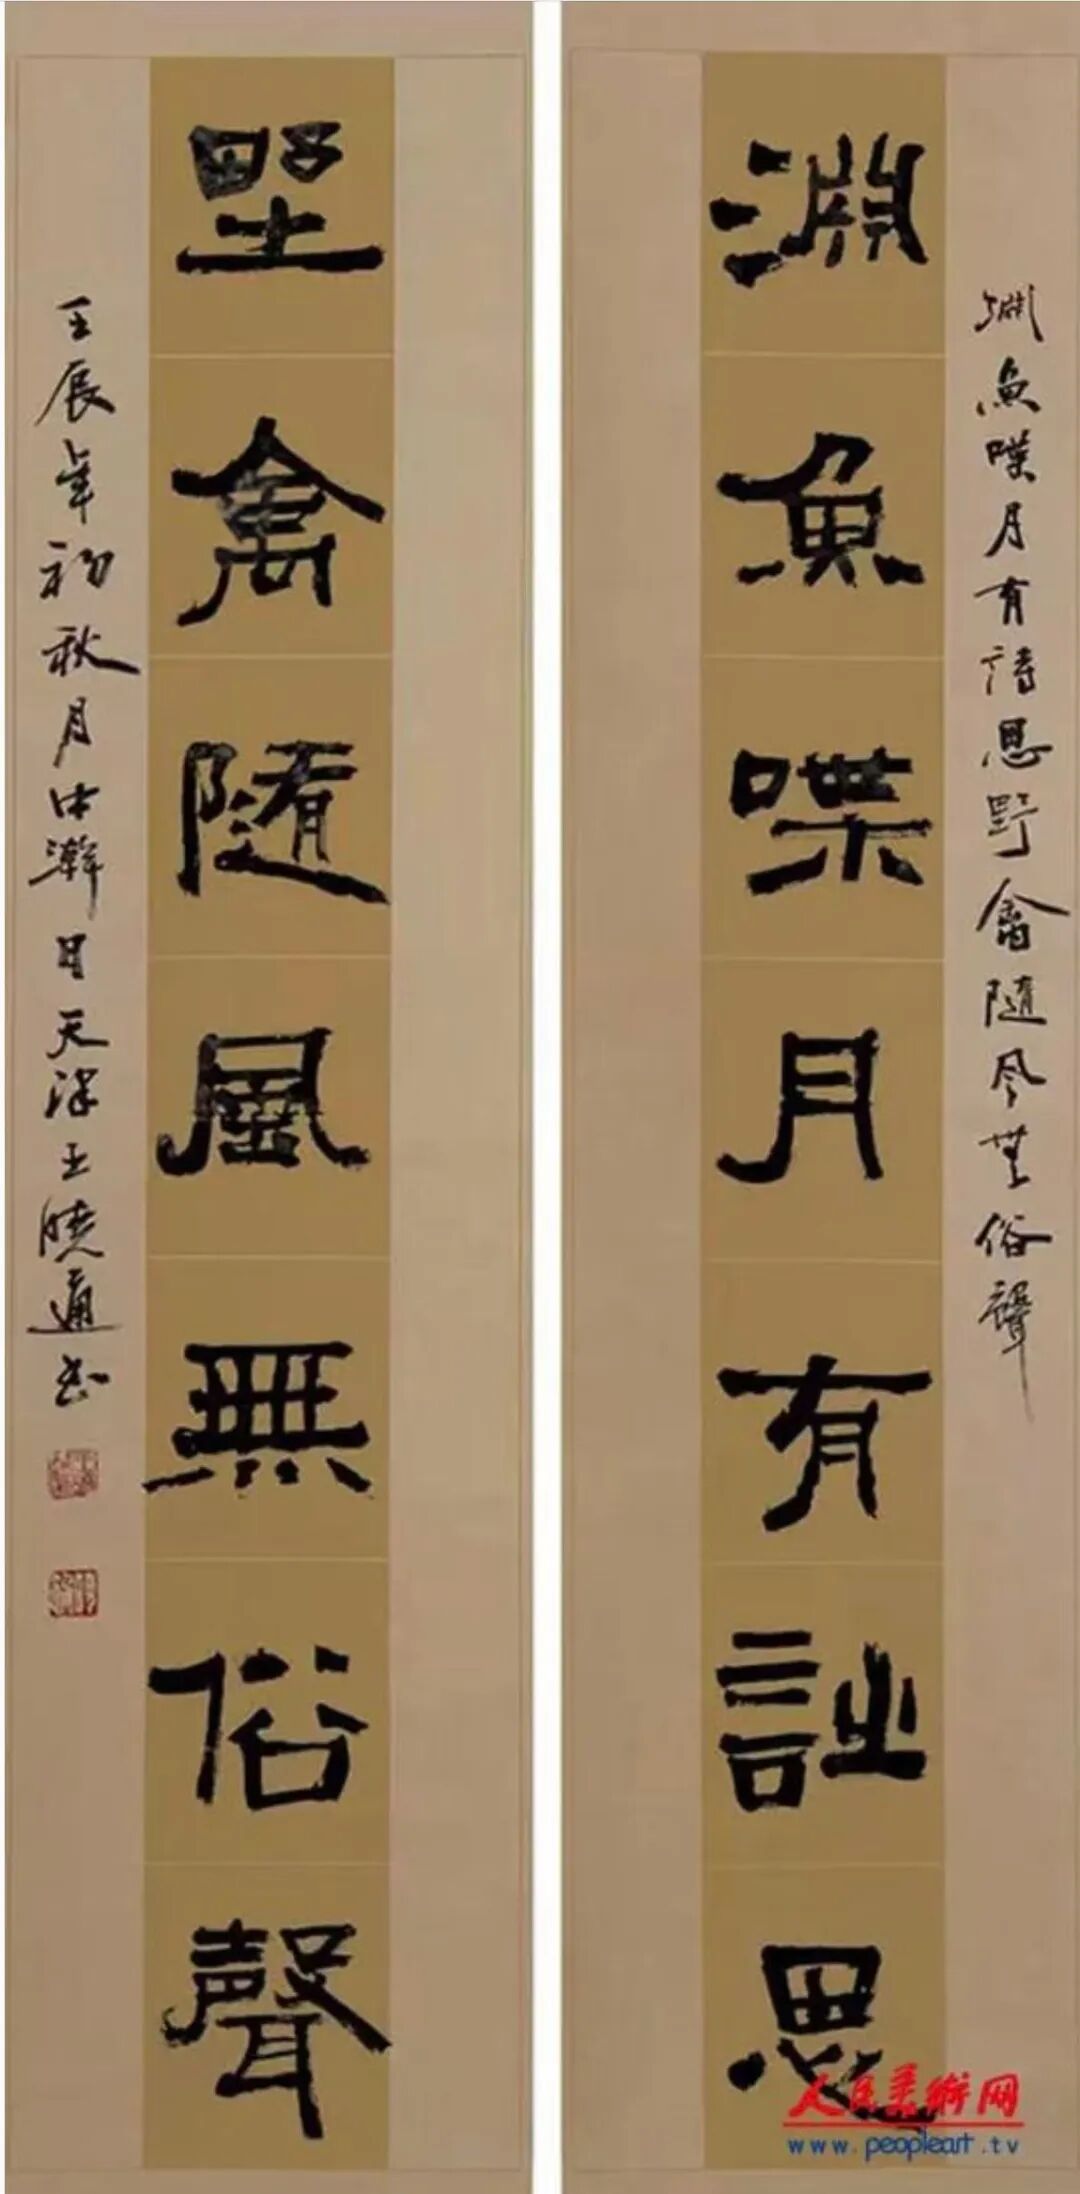 淵魚喋月有詩思野禽隨風無俗聲
淵魚喋月有詩思
野禽隨風無俗聲
壬辰年初秋月中澣日天津王曉書
人民美術网
www.peopleart.tv